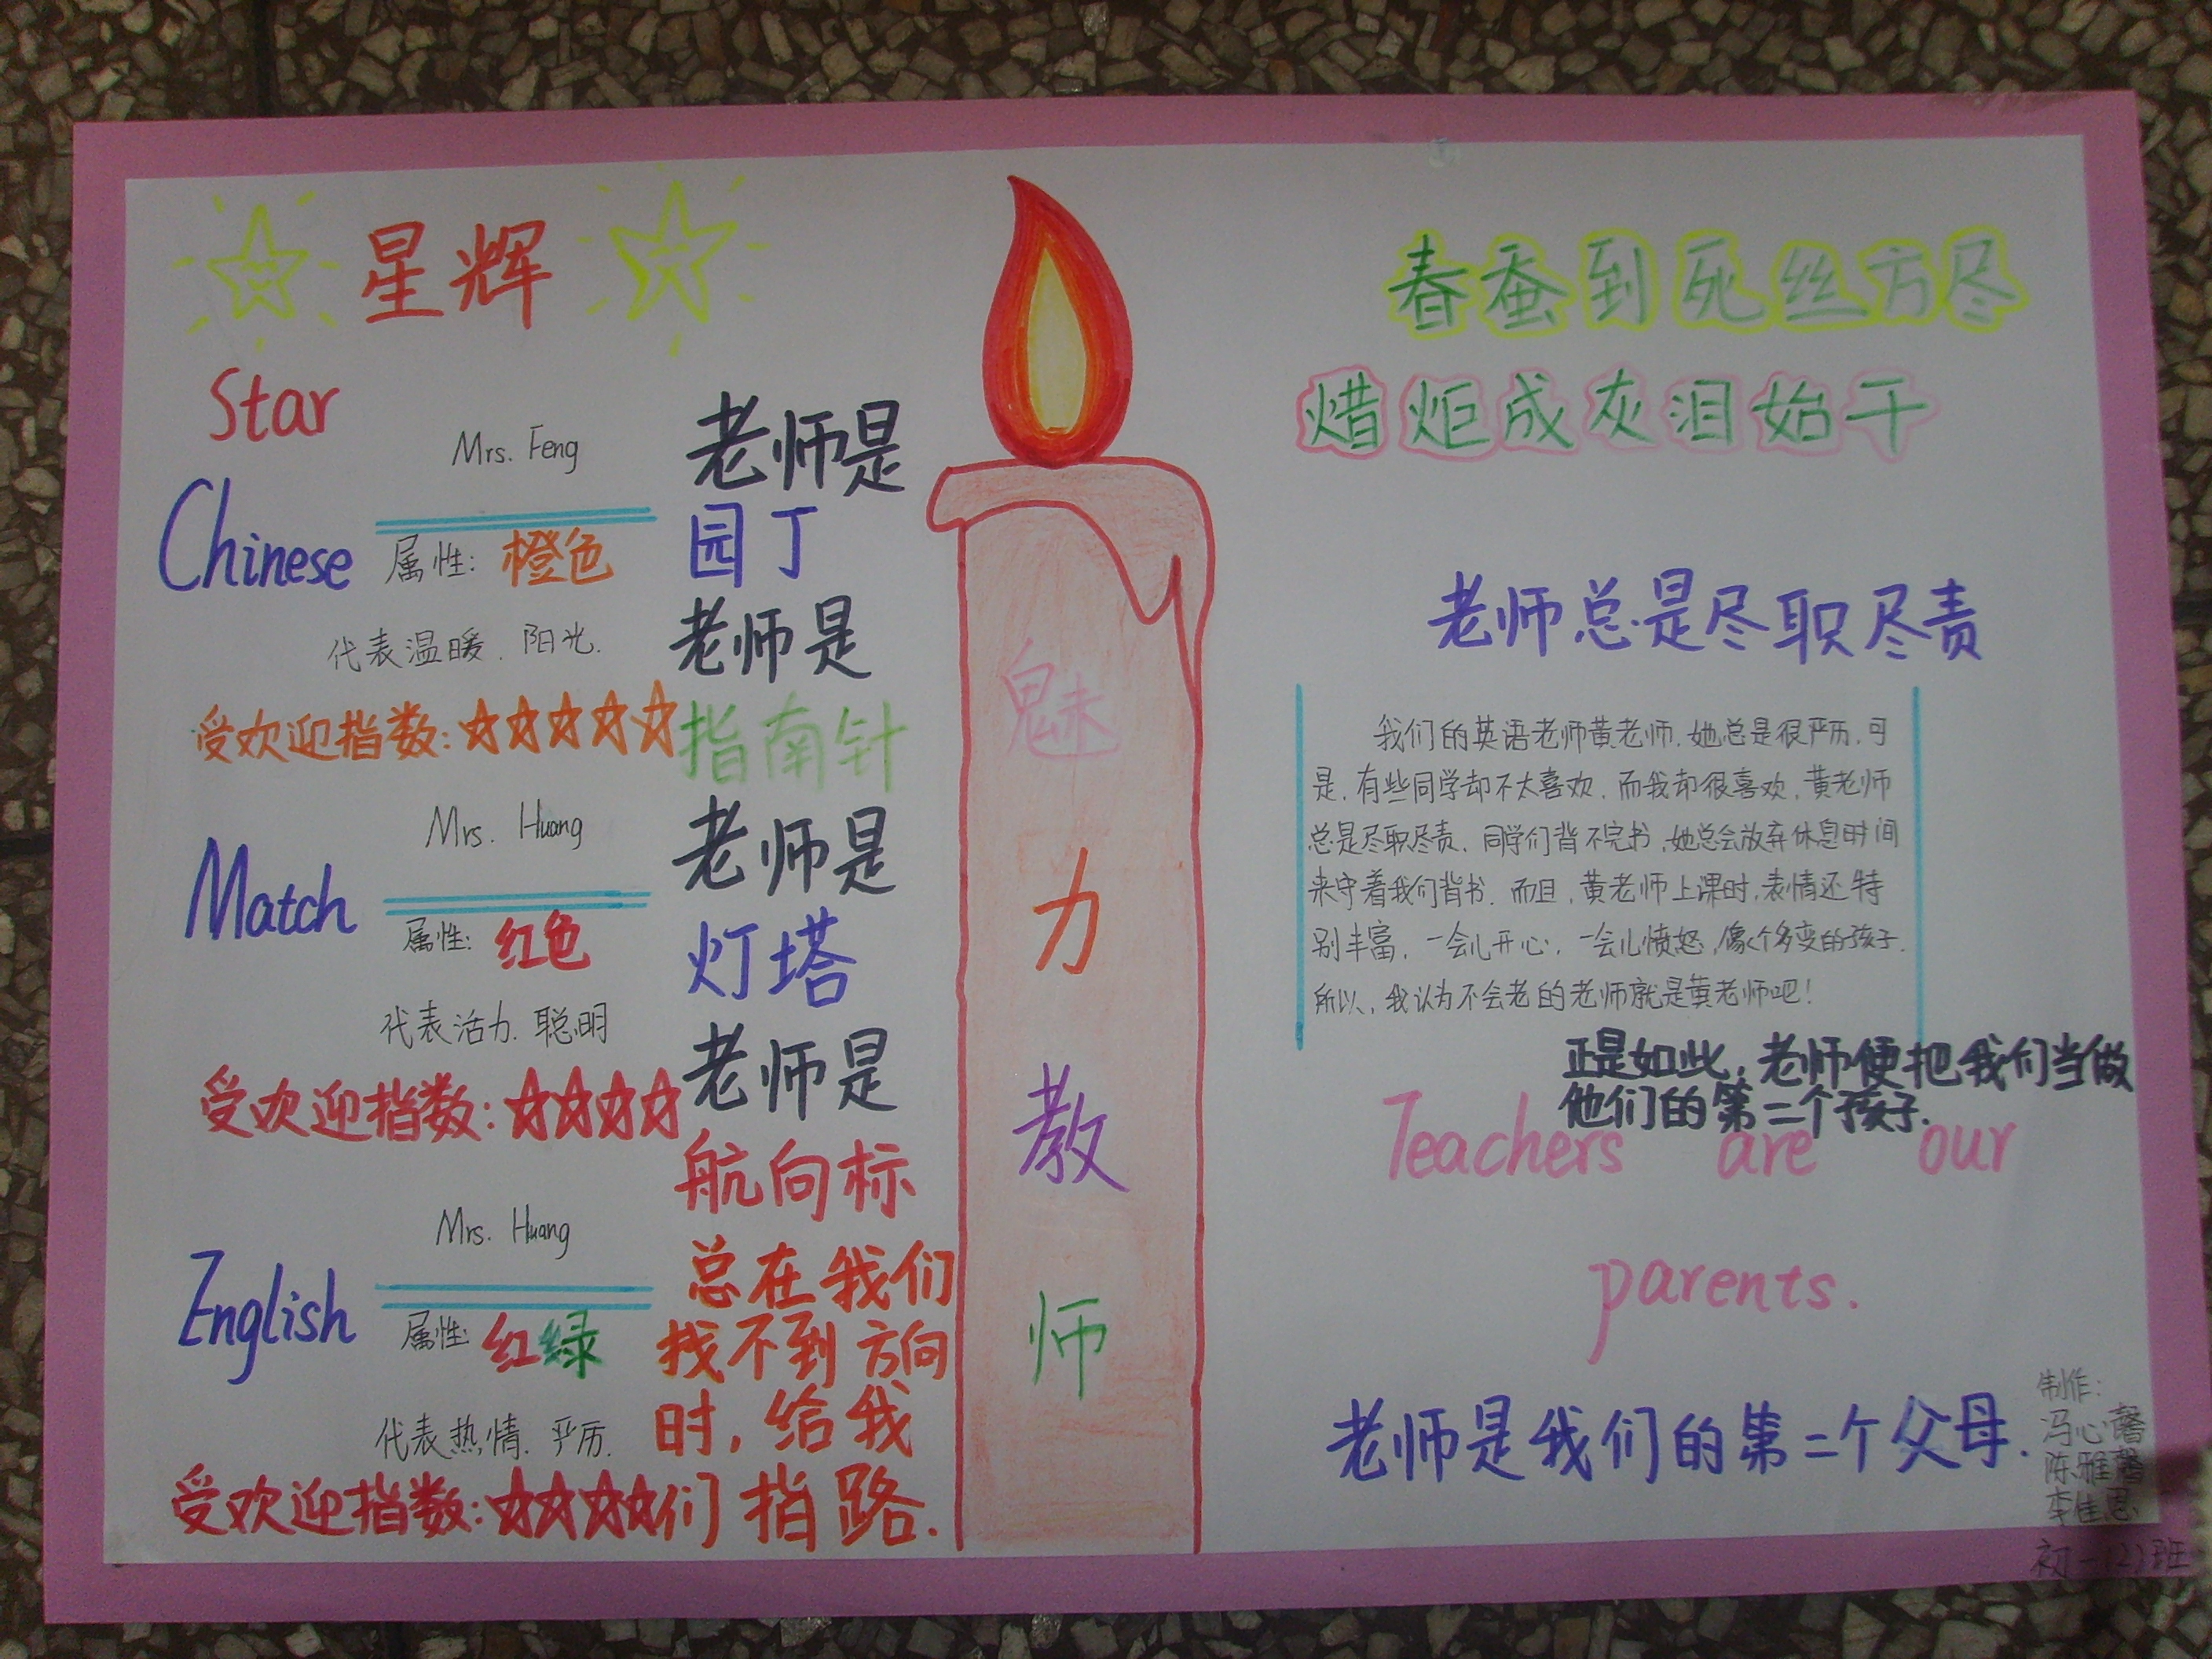 星辉
Star
Chinese
Mrs. Feng
属性：橙色
代表温暖．阳光．
受欢迎指数：☆☆☆☆☆
Match
Mrs. Huang
属性：红色
代表活力．聪明
受欢迎指数：☆☆☆☆
English
Mrs. Huang
属性：红绿
代表热情．严厉．
受欢迎指数：☆☆☆☆
老师是
园丁
老师是
指南针
老师是
灯塔
老师是
航向标
总在我们
找不到方向
时，给我
们指路．
魅
力
教
师
春蚕到死丝方尽
烛炬成灰泪始干
老师总是尽职尽责
我们的英语老师黄老师．她总是很严厉．可
是．有些同学却不太喜欢．而我却很喜欢．黄老师
总是尽职尽责．同学们背不完书，她总会放弃休息时间
来守着我们背书．而且，黄老师上课时，表情还特
别丰富．一会儿开心，一会儿愤怒，像个多变的孩子．
所以，我认为不会老的老师就是黄老师吧！
正是如此，老师便把我们当做
他们的第二个孩子．
Teachers are our
parents.
老师是我们的第二个父母．
制作：
冯心馨
陈雅馨
李佳恩
初一（2）班